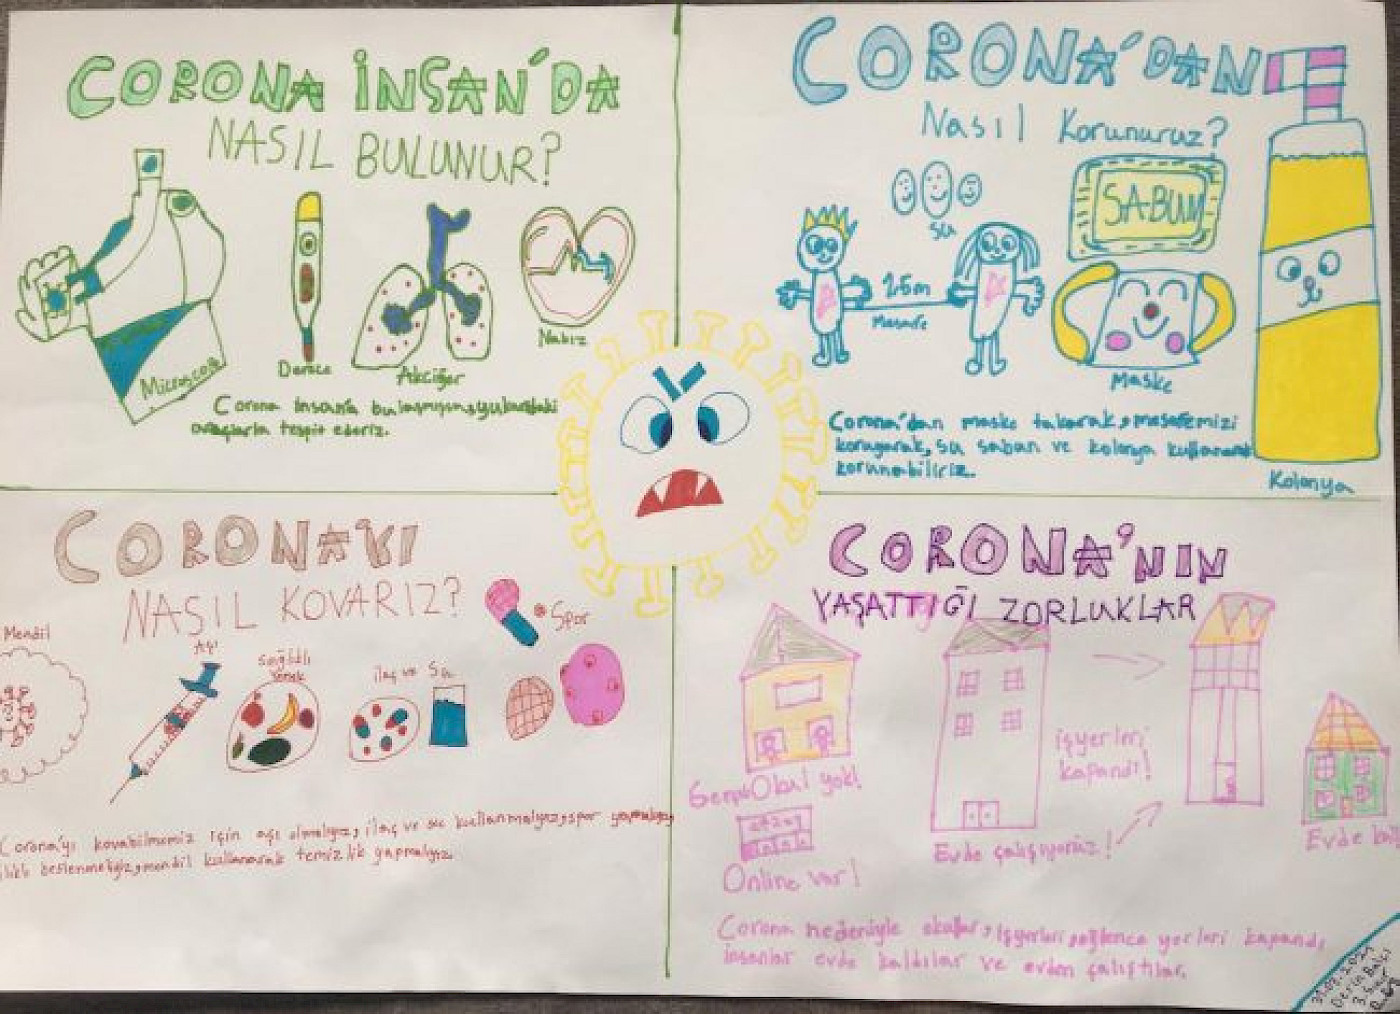 CORONA İNSAN'DA
NASIL BULUNUR?
Microscop
Derece
Akciğer
Nabız
Corona insana bulaşmışsa, yukardaki
araçlarla tespit ederiz.
CORONA'DAN
Nasıl Korunuruz?
su
SABUN
1.5m
Mesafe
Maske
Kolonya
Corona'dan maske takarak, mesafemizi
koruyarak, su saban ve kolonya kullanarak
korunabiliriz.
CORONA'YI
NASIL KOVARIZ?
Mendil
Aşı
Sağlıklı
Yemek
ilaç ve Su
Spor
Corona'yı kovabilmemiz için aşı olmalıyız, ilaç ve su kullanmalıyız, spor yapmalıyız
beslenmeliyiz, mendil kullanarak temizlik yapmalıyız.
CORONA'NIN
YAŞATTIĞI ZORLUKLAR
Okul yok!
Online var!
işyerleri
kapandı!
Evde çalışıyoruz!
Evde
Corona nedeniyle okullar, işyerleri, eğlence yerleri kapandı,
insanlar evde kaldılar ve evden çalıştılar.
3. Sınıf